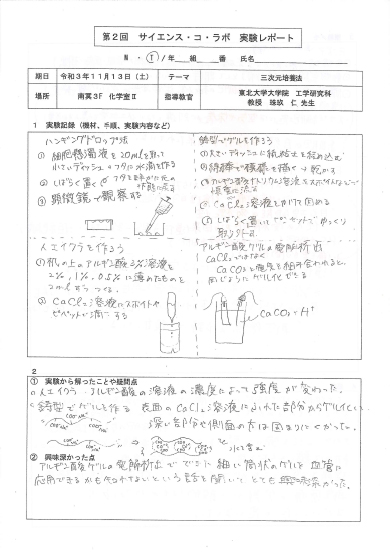 第2回 サイエンス・コ・ラボ 実験レポート
N ・ I / 年 組 番 氏名
期日 令和3年11月13日(土) テーマ 三次元培養法
場所 南英3F 化学室Ⅱ 指導教官 東北大学大学院 工学研究科
教授 珠玖 仁 先生
1 実験記録(機材、手順、実験内容など)
ハンギングドロップ法
① 細胞懸濁液を20mLを取って
小さいディッシュのフタに水滴を作る
② しばらく置く
③ 顕微鏡で観察する
鋳型でゲルを作ろう
① 大きいディッシュに紙粘土を詰め込む
④ CaCl₂溶液をかけて固める
⑤ しばらく置いて ピンセットでゆっくり
取り外す。
人工イクラを作ろう
① 机の上のアルギン酸3%溶液を
2%, 1%, 0.5%に薄めたものを
2mLずつつくる。
② CaCl₂溶液にスポイトや
ピペットで滴下する
アルギン酸ゲルの電解析出
CaCl₂ではなく
CaCO₃と電極を組み合われると、
同じようにゲル化できる
CaCO₃ H⁺
2
① 実験から解ったことや疑問点
人工イクラ アルギン酸の溶液の濃度によって強度が変わった。
鋳型でゲルを作る 表面のCaCl₂溶液にふれた部分からゲル化し、
深い部分や側面の方は固まりにくかった。
② 興味深かった点
アルギン酸ゲルの電解析出でできた細い筒状のゲルを血管に
応用できるかもしれないという話を聞いてとても興味深かった。